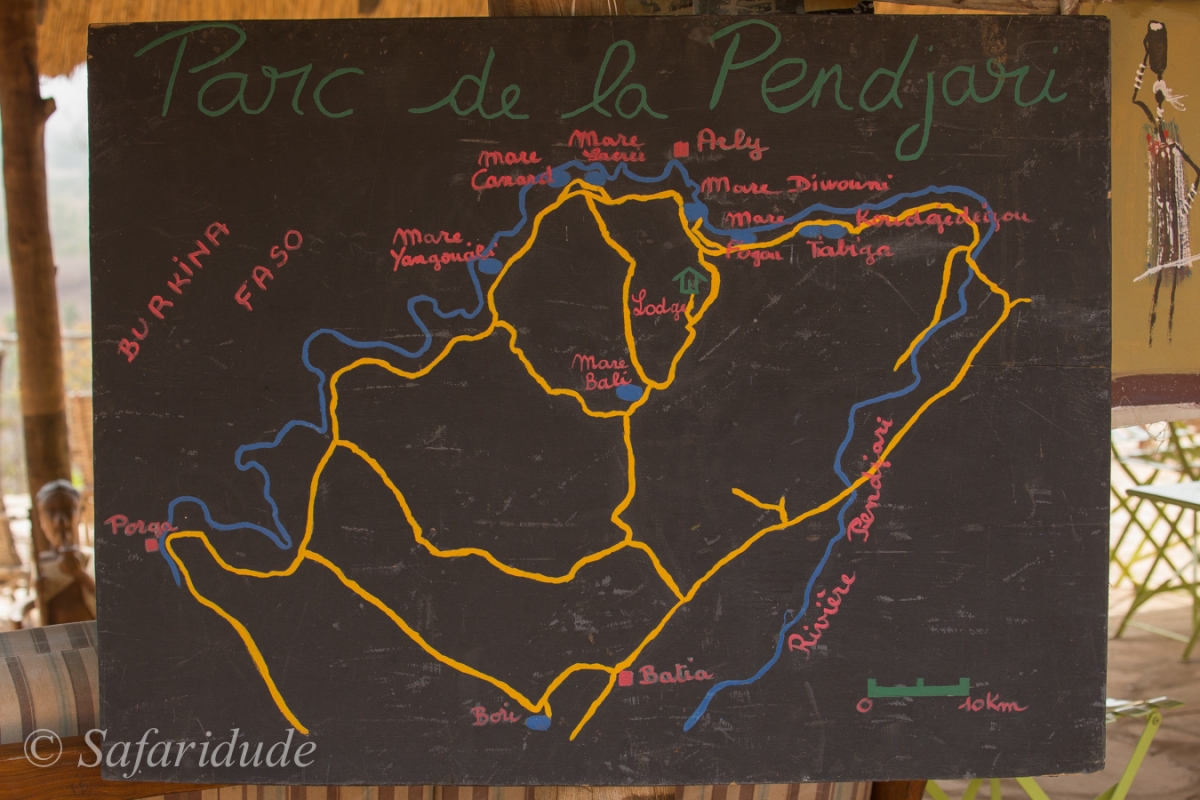 Parc de la Pendjari
Mare
Sacrée
Arly
Mare
Canard
Mare Diwouni
Mare
Yangouali
Mare
Fogou
Tabiga
BURKINA
FASO
Lodge
Mare
Bali
Rivière Pendjari
Porga
Batia
Bori
0
10Km
© Safaridude